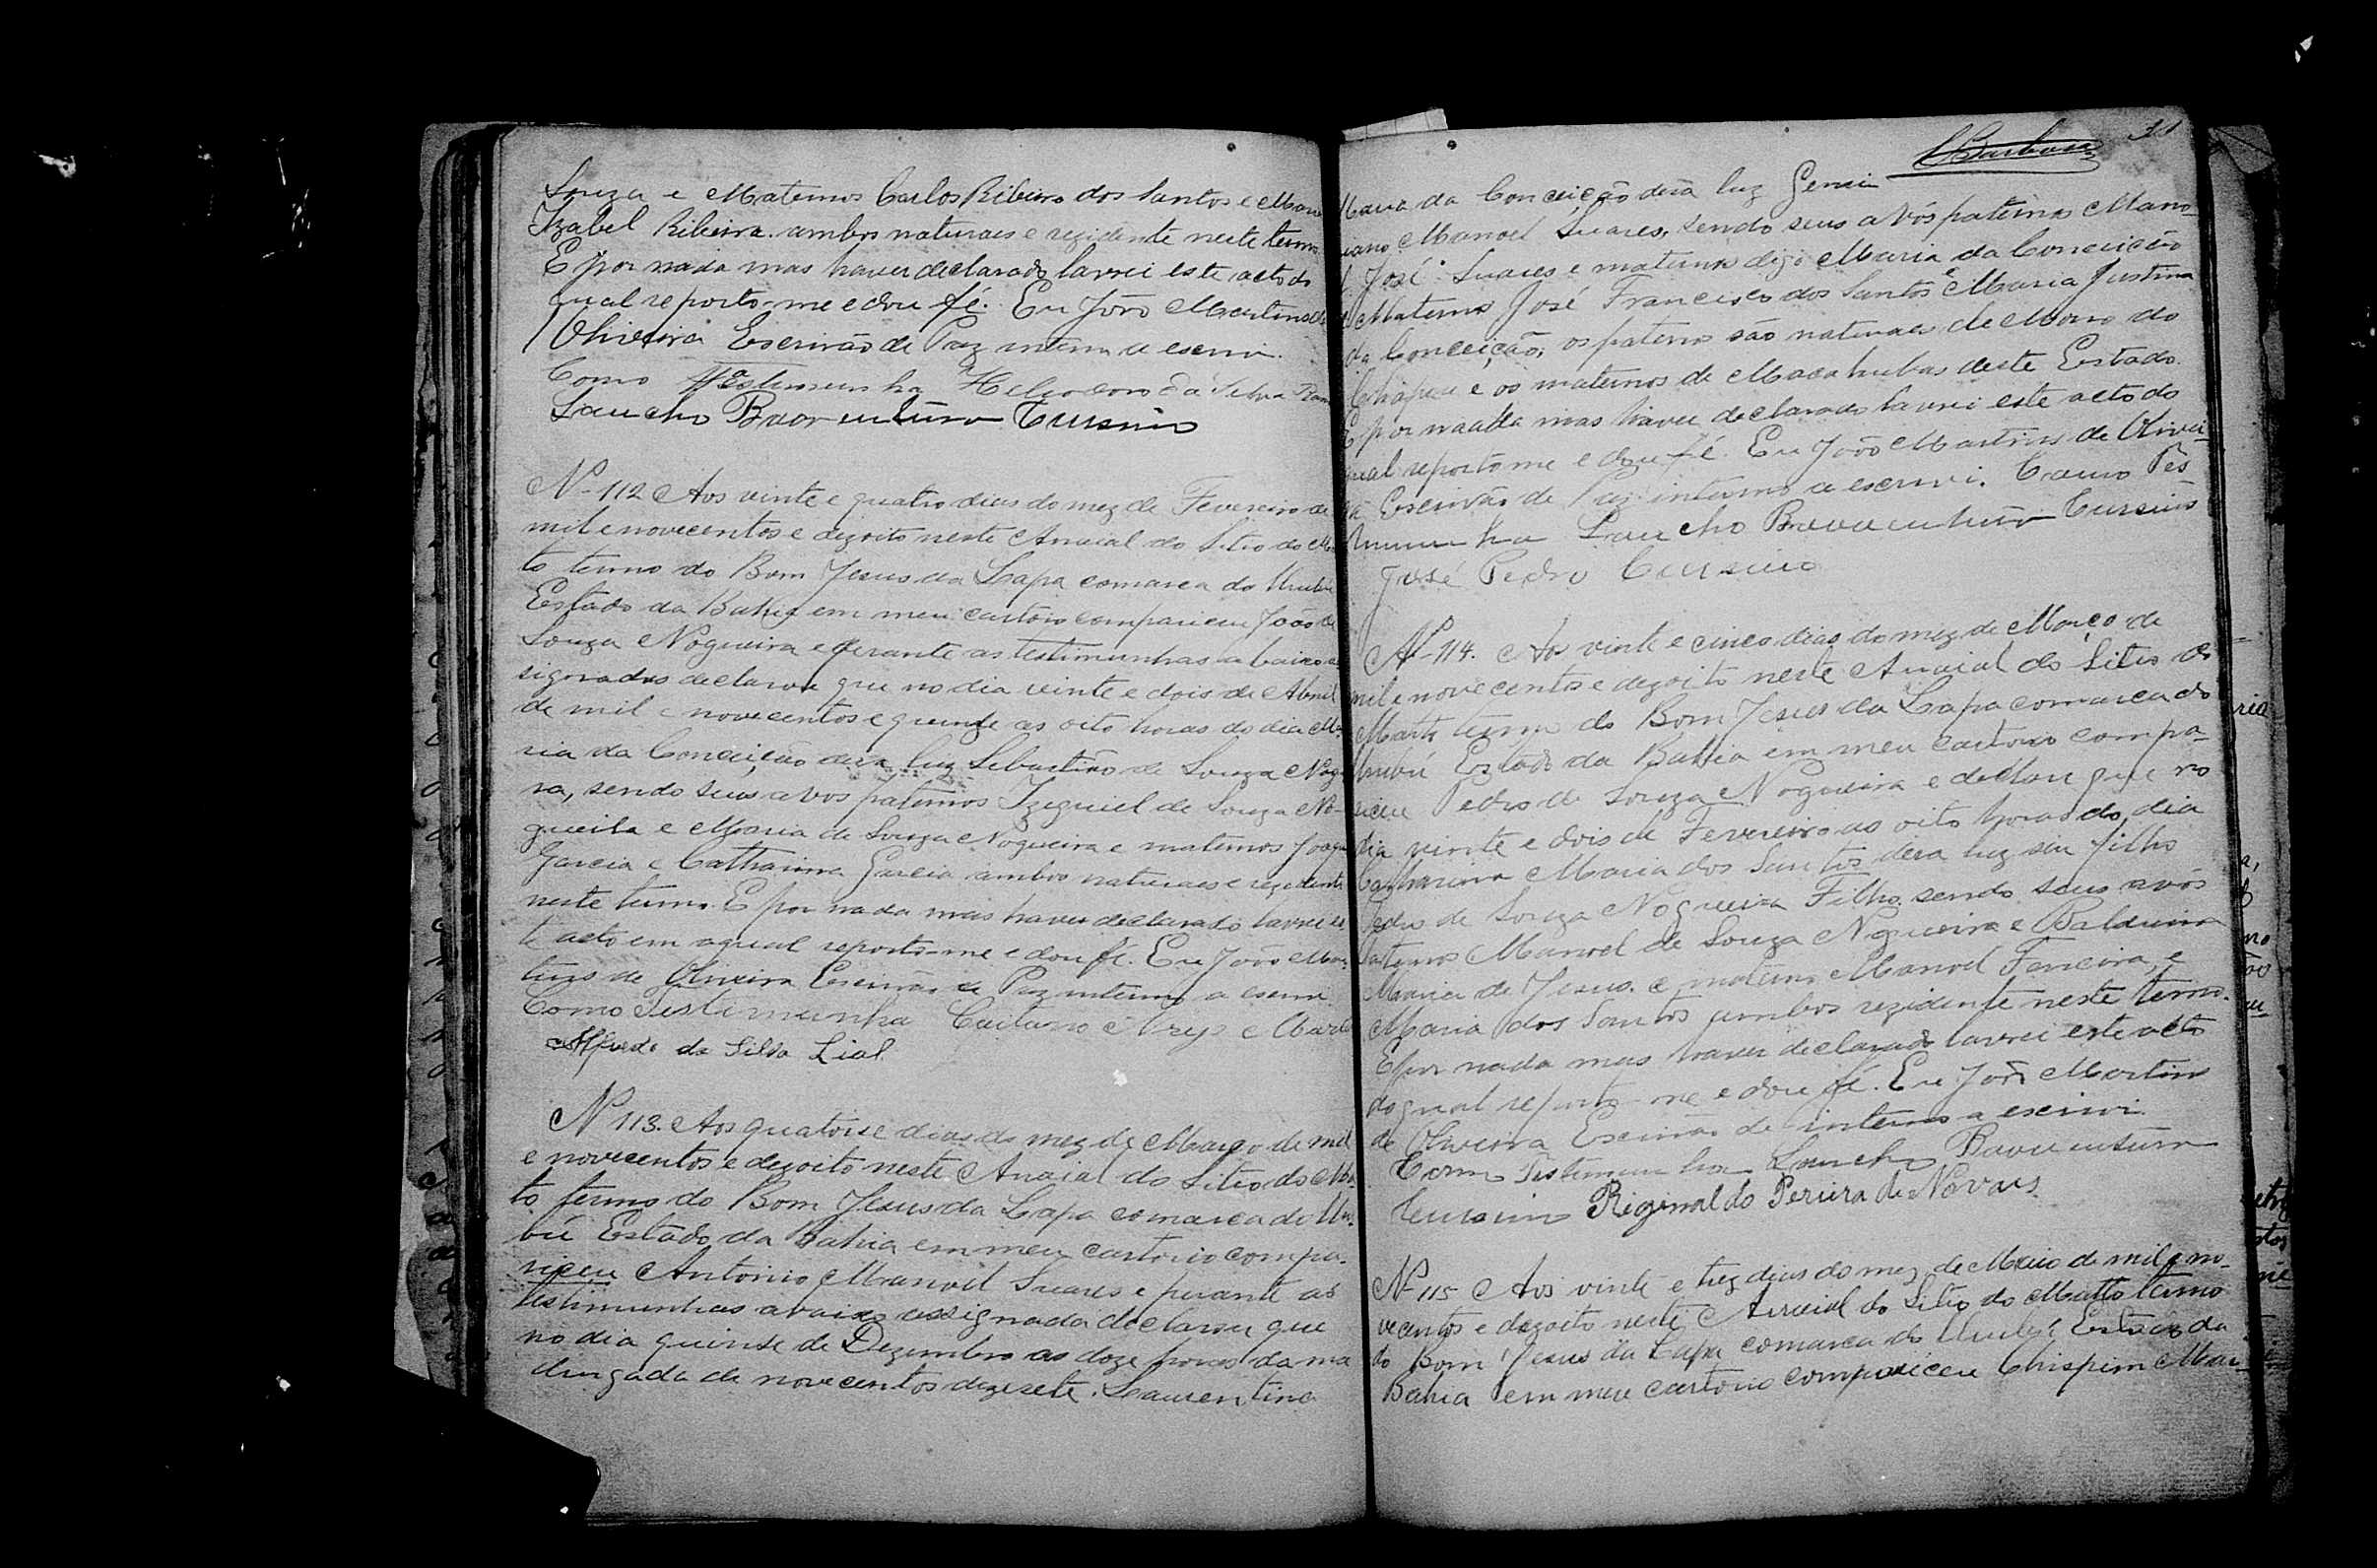 Souza e Maternos Carlos Ribeiro dos Santos e Maria
Izabel Ribeira. ambos naturaes e rezidente neste termo
E por nada mas haver declarado lavrei este acto do
qual reporto-me e dou fé. Eu João Martins de
Oliveira Escrivão de Paz interno a escrevi.
Como Testemunha Heliodoro da Silva
Sancho Boaventura Cursino
Nº 112 Aos vinte e quatro dias do mez de Fevereiro de
mil e novecentos e dezoito neste Arraial do Sitio do Mat
to termo do Bom Jesus da Lapa comarca do Urubú
Estado da Bahia em meu cartorio compariceu João de
Souza Nogueira e perante as testimunhas a baixo as
signadas declarou que no dia vinte e dois de Abril
de mil e novecentos e quinze as oito horas do dia Ma
ria da Conceição dera luz Sebastião de Souza Nog
ra, sendo seus avos paternos Izequiel de Souza No-
gueira e Maria de Souza Nogueira e maternos Joaqu
Garcia e Catharina Garcia ambos naturaes e rezedente
neste termo. E por nada mas haver declarado lavrei es
te acto em a qual reporto-me e dou fé. Eu João Mar-
tins de Oliveira Escrivão de Paz interno a escrevi
Como Testimunha Caitano
Alfredo da Silva Lial
Nº 113. Aos quatorse dias do mez de Março de mil
e novecentos e dezoito neste Arraial do Sitio do Mat
to termo do Bom Jesus da Lapa comarca do Uru-
bú Estado da Bahia em meu cartorio compa-
riceu Antonio Manoel Suares e perante as
testimunhas abaixo assignada declarou que
no dia quinse de Dezembro as doze horas da ma
drugada de novecentos dezesete. Laurentina
Barbosa 31
Maria da Conceição dera luz Gerci
iano Manoel Suares, sendo seus avós paternos Mano-
l José Suares e materna digo Maria da Conceição
e Maternos José Francisco dos Santos e Maria Justina
da Conceição, os paternos são naturaes de Morro do
Chapeu e os maternos de Macahubas deste Estado.
E por nada mas haver declarado lavrei este acto do
qual reporto me e dou fé. Eu João Martins de Olivei-
ra Escrivão de Paz interno a escrevi. Como Tes
timunha Sancho Boaventura Cursino
José Pedro Cursino
Nº 114. Aos vinte e cinco dias do mez de Março de
mil e novecentos e dezoito neste Arraial do Sitio do
Matto termo do Bom Jesus da Lapa comarca do
Urubú Estado da Bahia em meu cartorio compa-
riceu Pedro de Souza Nogueira e declarou que no
dia vinte e dois de Fevereiro as oito horas do dia
Catharina Maria dos Santos dera luz seu filho
Pedro de Souza Nogueira Filho. sendo seus avós
Paternos Manoel de Souza Nogueira e Balduina
Maria de Jesus. e materno Manoel Ferreira, e
Maria dos Santos ambos rezidente neste termo.
E por nada mas haver declarado lavrei este acto
do qual reporto-me e dou fé. Eu João Martins
de Oliveira Escrivão de interno a escrevi
Como Testimunha Sancho Boaventura
Cursino Riginaldo Periera de Novais
Nº 115 Aos vinte e trez dias do mez de Maio de mil e no-
vecentos e dezoito neste Arraial do Sitio do Matto termo
do Bom Jesus da Lapa comarca do Urubú Estado da
Bahia em meu cartorio compariceu Chrispim Mar-